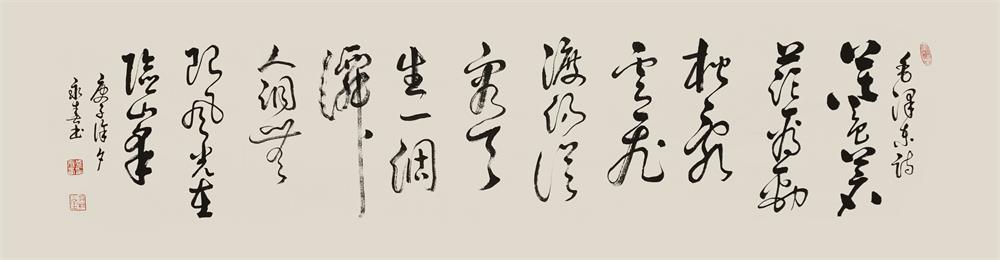 毛澤东詩
暮色蒼
茫看勁
松亂
雲飛
渡仍從
容天
生一個
僊
人洞無
限風光在
險峯
庚子除夕
永
书